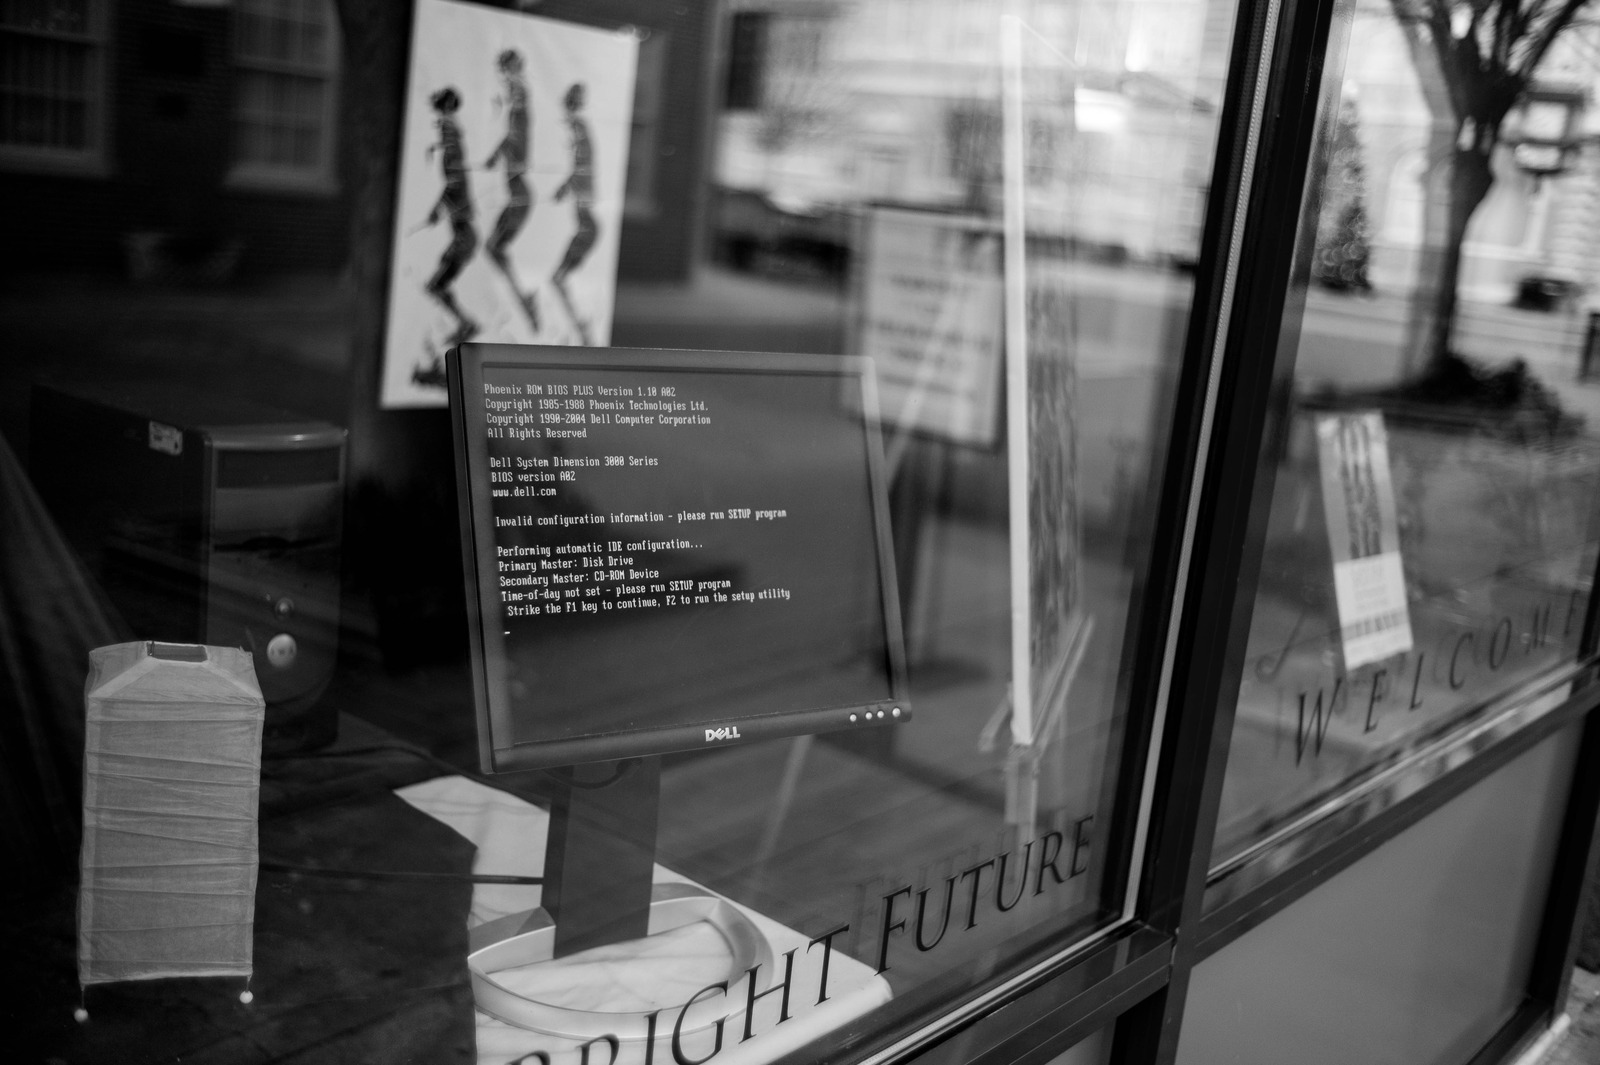 Phoenix ROM BIOS PLUS Version 1.10 A02
Copyright 1985-1988 Phoenix Technologies Ltd.
Copyright 1990-2004 Dell Computer Corporation
All Rights Reserved
Dell System Dimension 3000 Series
BIOS version A02
www.dell.com
Invalid configuration information - please run SETUP program
Performing automatic IDE configuration...
Primary Master: Disk Drive
Secondary Master: CD-ROM Device
Time-of-day not set - please run SETUP program
Strike the F1 key to continue, F2 to run the setup utility
DELL
BRIGHT FUTURE
WELCOME